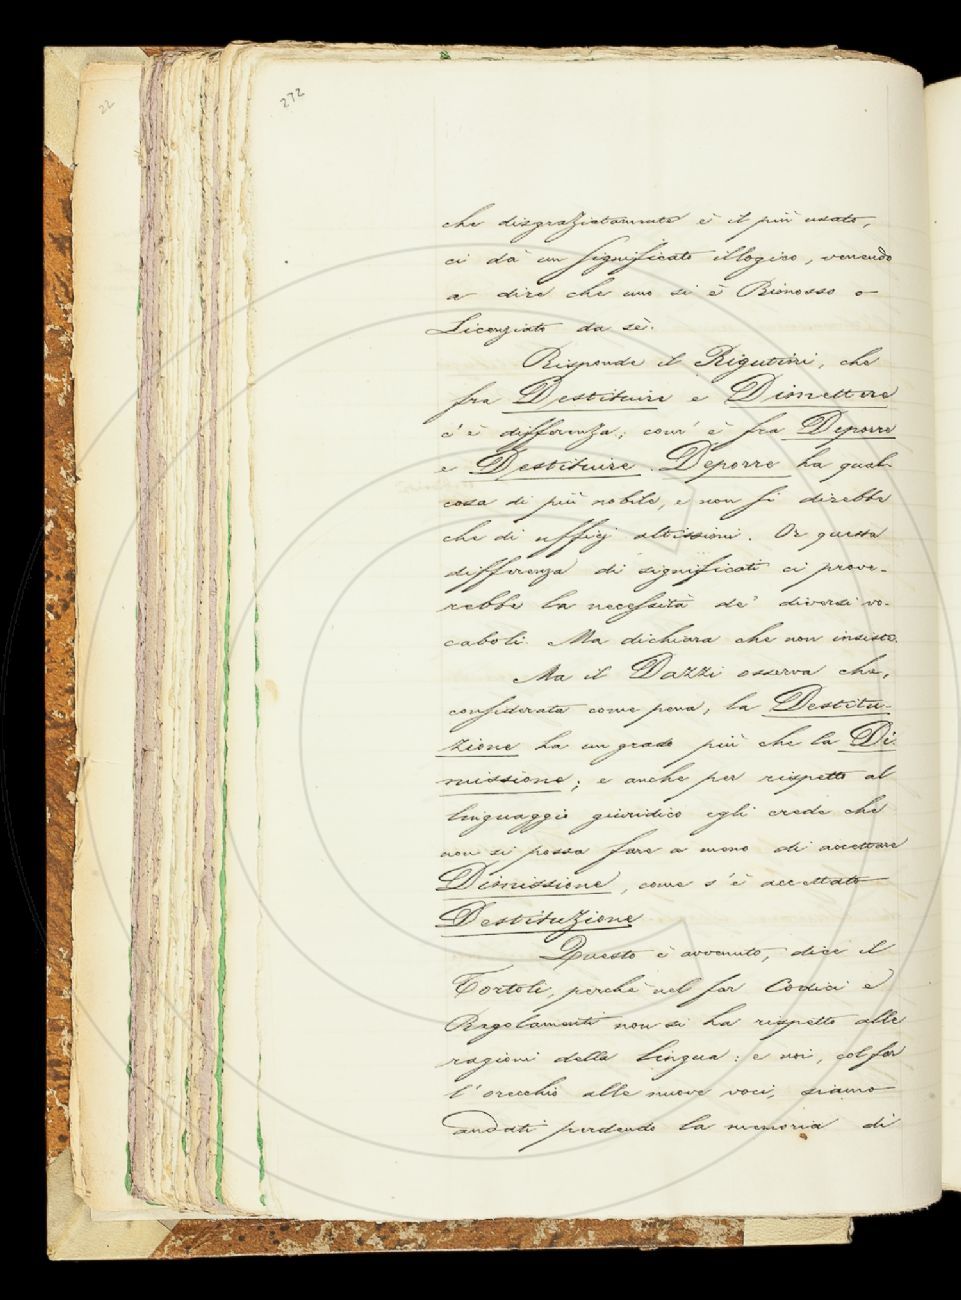 22
272
che disgraziatamente è il più usato,
ci dà un significato illogico, venendo
a dire che uno si è Rimosso o
Licenziato da sè.
Risponde il Rigutini, che
fra Destituire e Dimettere
c'è differenza; com' è fra Deporre
e Destituire. Deporre ha qual-
cosa di più nobile, e non si direbbe
che di ufficj altissimi. Or questa
differenza di significati ci prove-
rebbe la necessità de' diversi vo-
caboli. Ma dichiara che non insiste.
Ma il Dazzi osserva che,
considerata come pena, la Destitu-
zione ha un grado più che la Di-
missione; e anche per rispetto al
linguaggio giuridico egli crede che
non si possa fare a meno di accettare
Dimissione, come s'è accettato
Destituzione
Questo è avvenuto, dice il
Tortoli, perchè nel far Codici e
Regolamenti non si ha rispetto alle
ragioni della lingua: e noi, col far
l'orecchio alle nuove voci, siamo
andati perdendo la memoria di